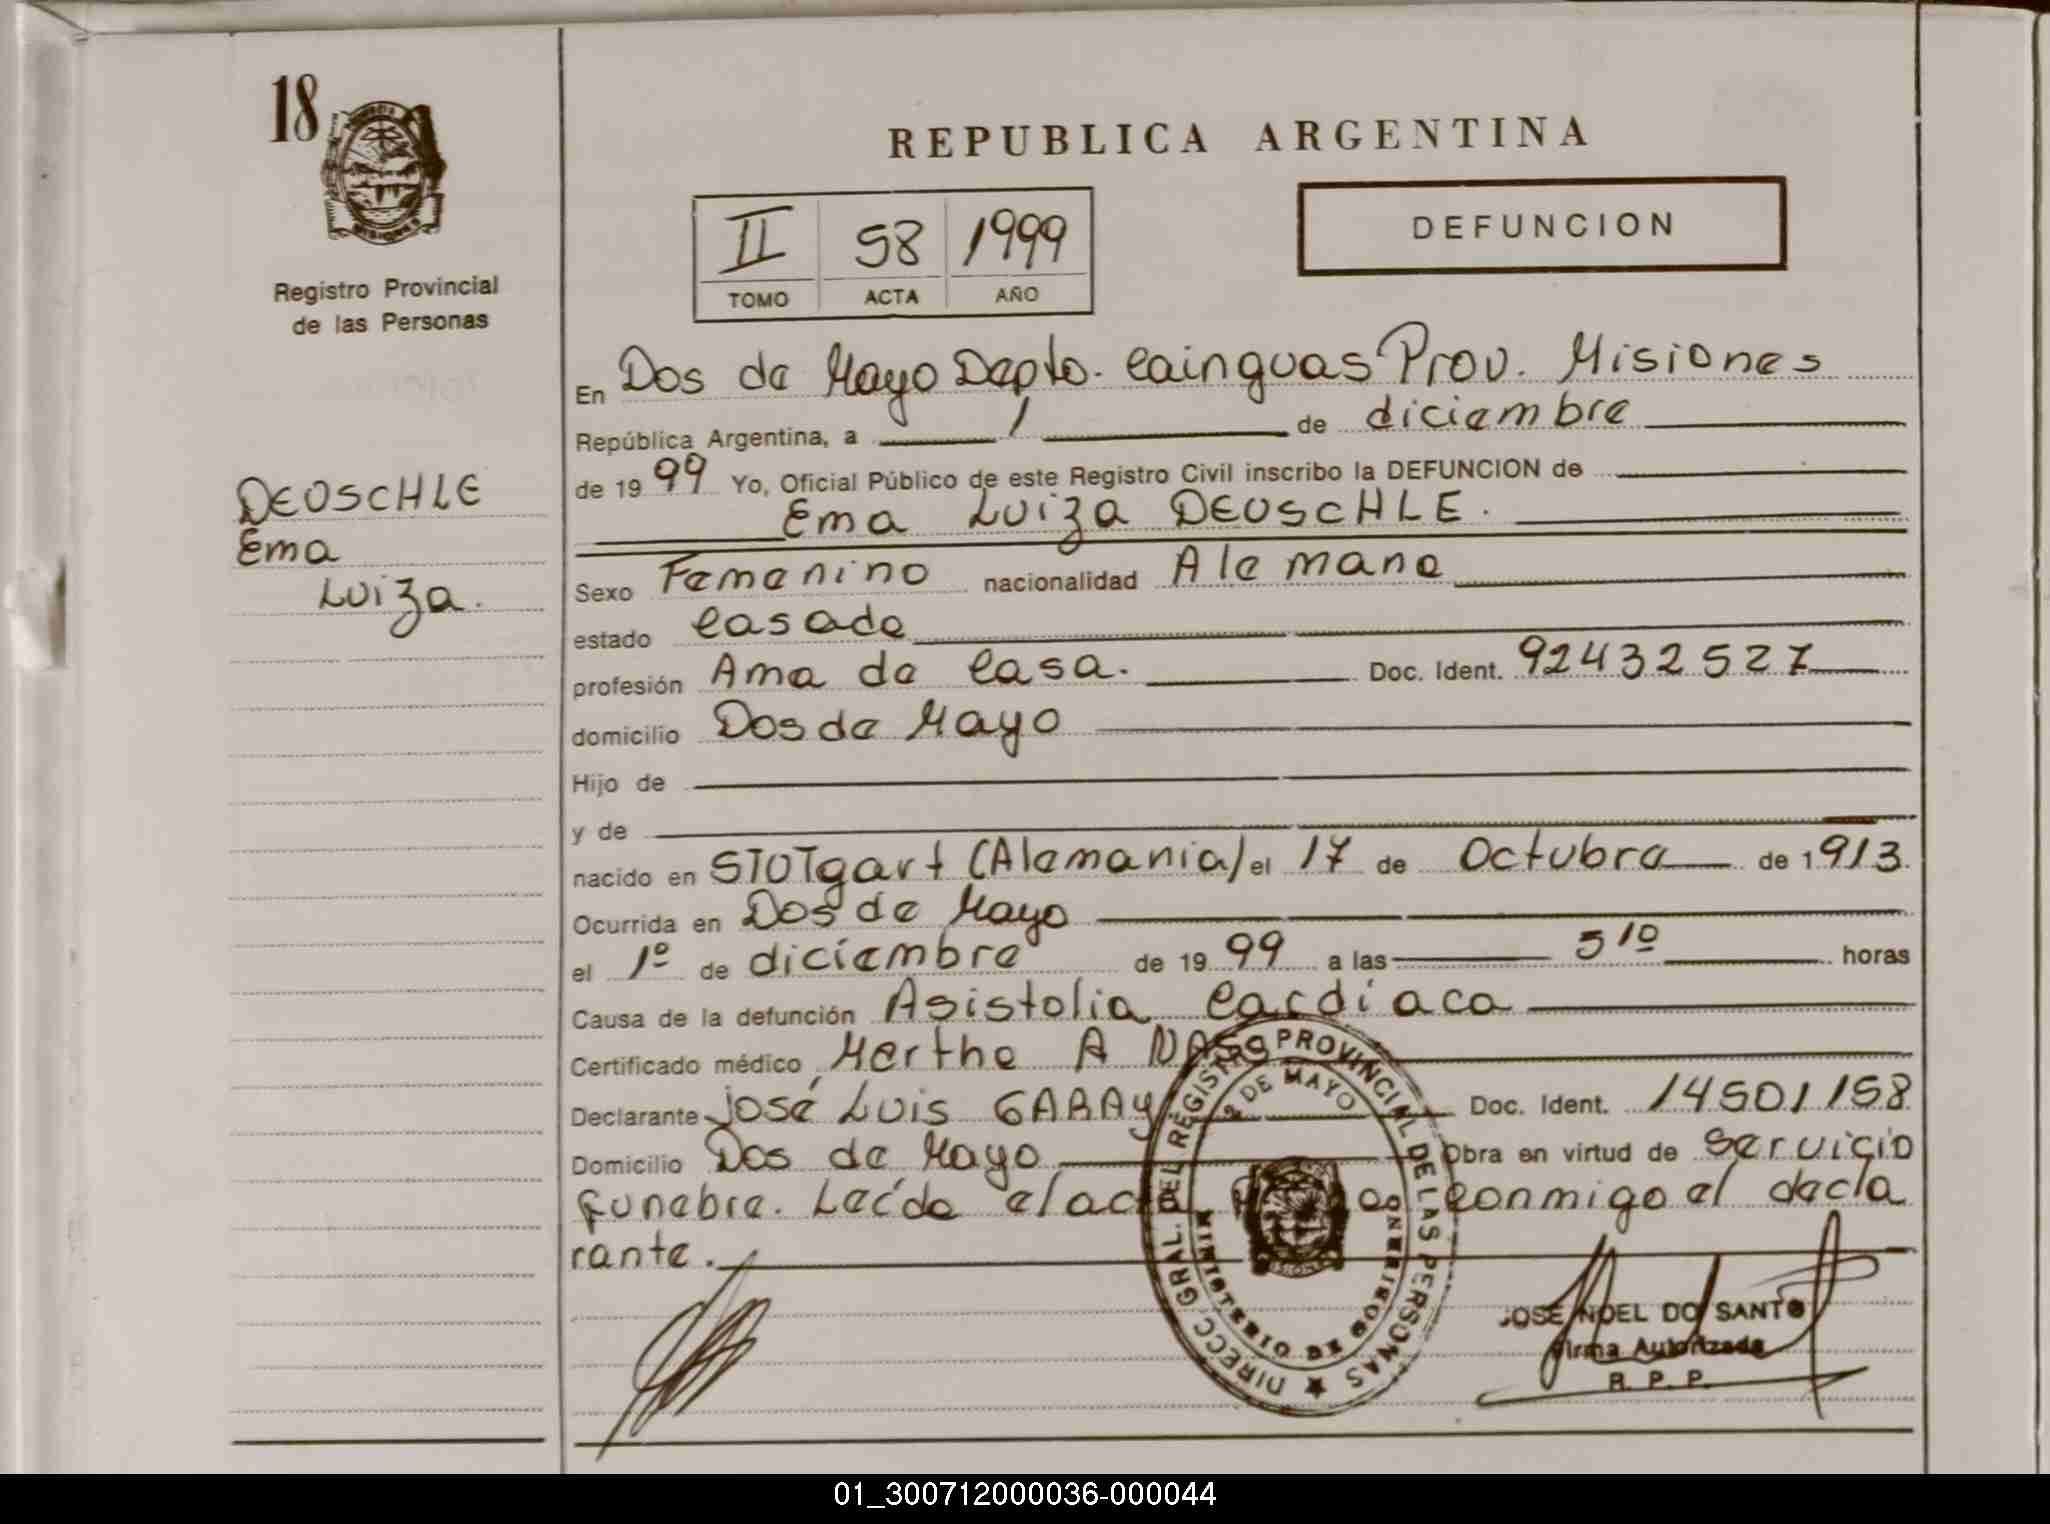 18
Registro Provincial
de las Personas
DEUSCHLE
Ema
Luiza.
REPUBLICA ARGENTINA
II 58 1999
TOMO ACTA AÑO
DEFUNCION
En Dos de Mayo Depto. Cainguas Prov. Misiones
República Argentina, a 1 de diciembre
de 1999 Yo, Oficial Público de este Registro Civil inscribo la DEFUNCION de
Ema Luiza DEUSCHLE.
Sexo Femenino nacionalidad Alemana
estado casada
profesión Ama de Casa. Doc. Ident. 92432527
domicilio Dos de Mayo
Hijo de
y de
nacido en STUTgart (Alemania) el 17 de Octubre de 1913
Ocurrida en Dos de Mayo
el 1º de diciembre de 1999 a las 5 10 horas
Causa de la defunción Asistolia Cardíaca
Certificado médico Martha A
Declarante José Luis GARAY Doc. Ident. 14501158
Domicilio Dos de Mayo Obra en virtud de servicio
funebre. Leída el acta conmigo el decla
rante.
DIRECC. GRAL. DEL REGISTRO PROVINCIAL DE LAS PERSONAS
2 DE MAYO
MINISTERIO DE GOBIERNO
JOSE NOEL DO SANTO
Firma Autorizada
R. P. P.
01_300712000036-000044